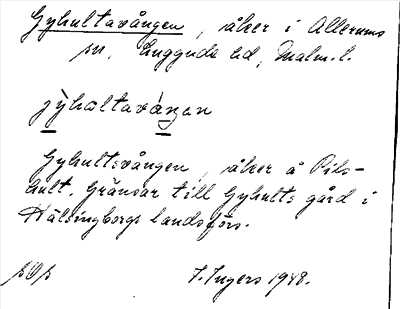 Gyhultavången, åker i Allerums
sn, Luggude hd, Malm. l.
jỳhaltaváŋan
Gyhultsvången, åker å Pils-
hult. Gränsar till Gyhults gård i
Hälsingborgs landsförs.
I. Ingers 1948.